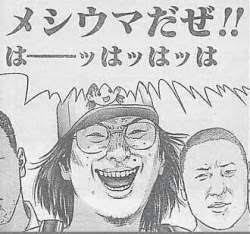 メシウマだぜ!!
は――ッはッはッは